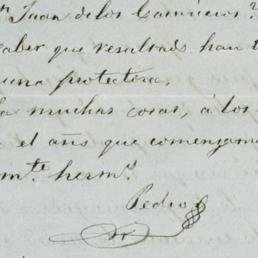 Juan de los Camineros?
saber que resultads han t
una protectora,
muchas cosas, á los
el añs que comenzam
m.te herm.s
Pedro